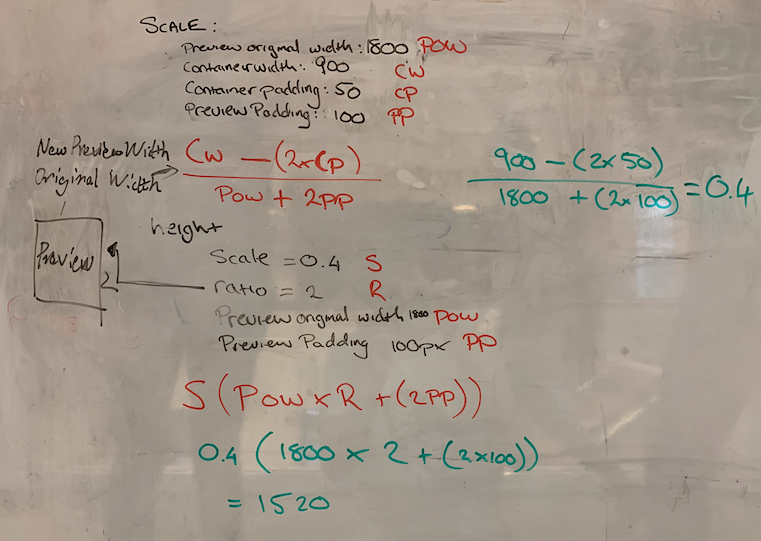 SCALE:
Preview orignal width: 1800 POW
Container width: 900 CW
Container padding: 50 CP
Preview Padding: 100 PP
New Preview Width
Original Width
CW - (2xCp)
POW + 2PP
900 - (2x50)
1800 + (2x100) = 0.4
Preview
2
height
Scale = 0.4 S
ratio = 2 R
Preview orignal width 1800 POW
Preview Padding 100px PP
S (POW x R + (2PP))
0.4 (1800 x 2 + (2x100))
= 1520